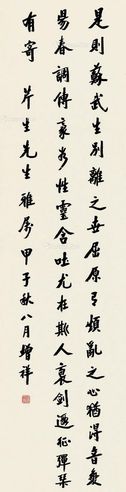 是則蘇武生別離之世屈原有煩亂之心猶得音變
陽春調傳哀劣性靈含吐尤在斯人哀劍遥征彈琹
有寄　芹生先生雅屬　甲子秋八月增祥